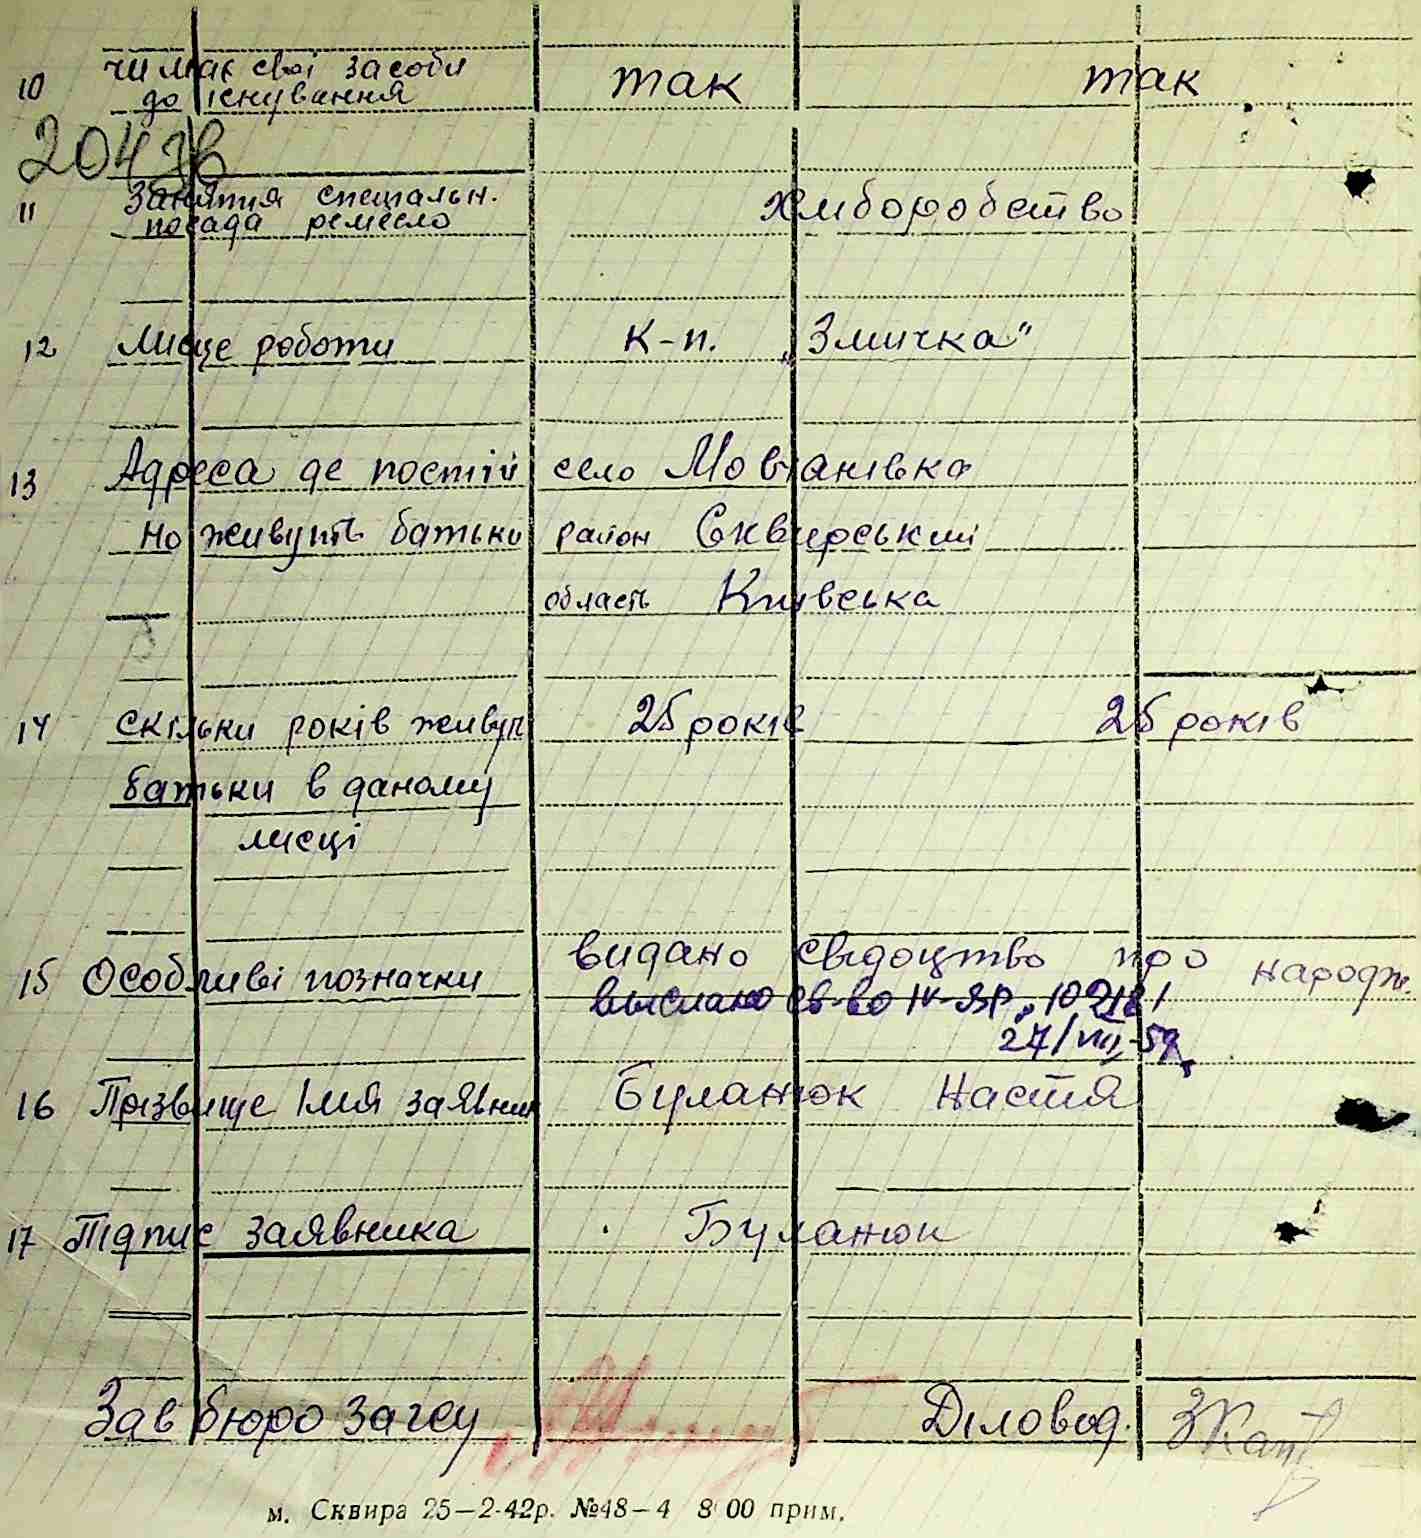 10 чи має свої засоби
до існування так так
204 зв
11 Заняття спеціальн.
посада ремесло Хліборобство
12 Місце роботи К-п. „Змичка"
13 Адреса де постій село Мовчанівка
но живуть батьки район Сквирський
область Київська
14 скільки років живут 25 років 25 років
батьки в даному
місці
15 Особливі позначки видано свідоцтво про народж.
выслано св-во IV-ЯР 102181
27/VIII-59
16 Прізвище Імя заявник Буланюк Настя
17 Підпис заявника Буланюк
Зав бюро загсу Діловод.
м. Сквира 25—2-42р. №48—4 8 00 прим.